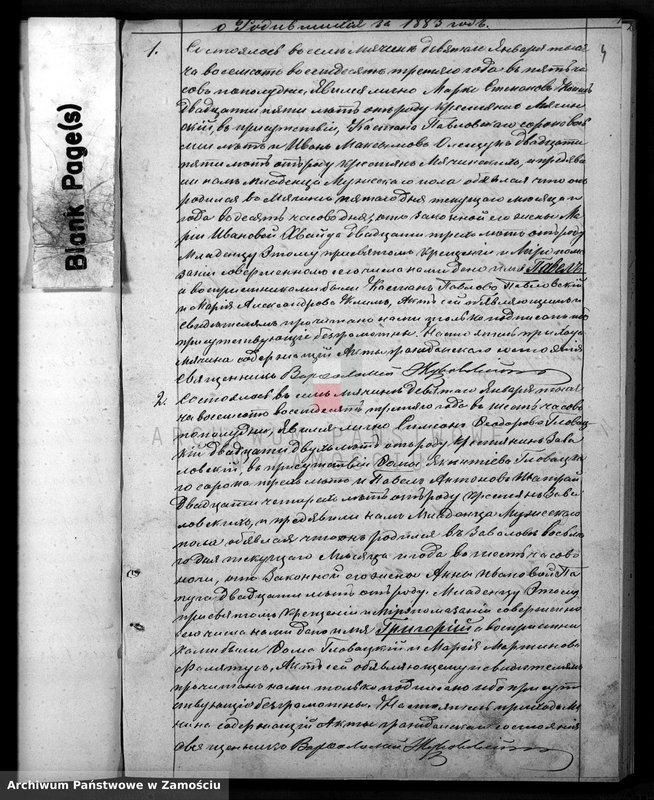 о Родившихся за 1883 годъ.
4
1. Состоялось въ селѣ Мячинѣ девятаго Января тыся-
ча восемьсотъ восемьдесятъ третьяго года въ пять ча-
совъ пополудни, явился лично Марко
двадцати пяти лѣтъ отъ роду крестьянинъ Мячин-
скій, въ присутствіи, Кастана Павловскаго сорока вось-
ми лѣтъ и Ивана Максимова двадцати
пяти лѣтъ отъ роду крестьянъ Мячинскихъ, и предъяви-
ли намъ младенца мужескаго пола объявляя что онъ
родился въ Мячинѣ пятаго дня текущаго мѣсяца и
года въ десять часовъ дня, отъ законной его жены Ма-
ріи Ивановой двадцати трехъ лѣтъ отъ роду
Младенцу этому при святомъ крещеніи и Миропома-
заніи совершенномъ сего числа нами дано имя Павелъ
а воспріемниками были Кастанъ Павловъ Павловскій
и Марія Александрова Актъ сей объявляющему и
свидѣтелямъ прочитанъ нами только подписанъ ибо
присутствующіе безграмотны. Настоятель прихода
Мячина содержащій Акты гражданскаго состоянія
священникъ Варѳоломей
2. Состоялось въ селѣ Мячинѣ девятаго Января тыся-
ча восемьсотъ восемьдесятъ третьяго года въ шесть часовъ
пополудни, явился лично Симеонъ Ѳеодоровъ Гловац-
кій двадцати двухъ лѣтъ отъ роду крестьянинъ Зава-
ловскій, въ присутствіи Ѳомы Гловацка-
го сорока трехъ лѣтъ и Павла Антонова
двадцати четырехъ лѣтъ отъ роду крестьянъ Зава-
ловскихъ, и предъявили намъ младенца мужескаго
пола объявляя что онъ родился въ Заваловѣ восьма-
го дня текущаго мѣсяца и года въ шесть часовъ
ночи, отъ законной его жены Анны Ивановой
двадцати лѣтъ отъ роду. Младенцу этому
при святомъ крещеніи и Миропомазаніи совершенно
сего числа нами дано имя Григорій а воспріемни-
ками были Ѳома Гловацкій и Марія Мартинова
Актъ сей объявляющему и свидѣтелямъ
прочитанъ нами только подписано ибо присут-
ствующіе безграмотны. Настоятель прихода Мя-
чина содержащій Акты гражданскаго состоянія
священникъ Варѳоломей
Blank Page(s)
ARCHIWUM PAŃSTWOWE
W ZAMOŚCIU
Archiwum Państwowe w Zamościu